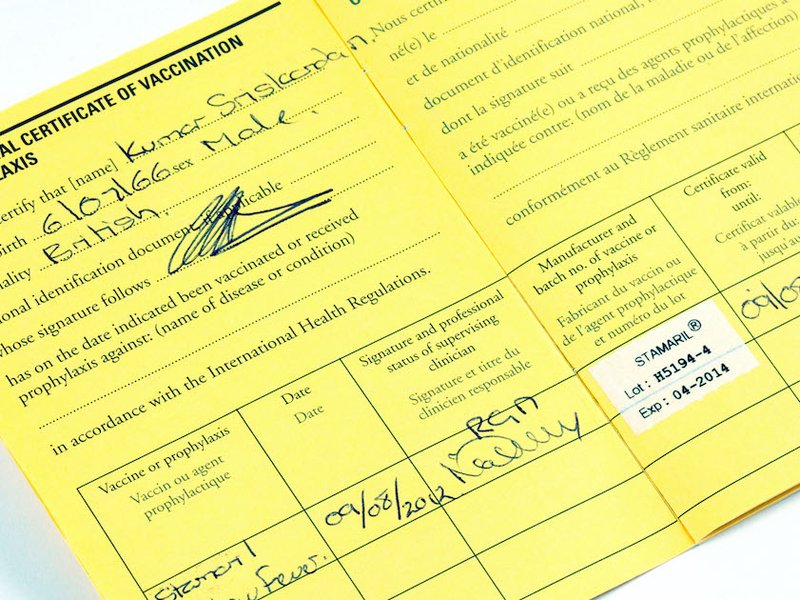 AL CERTIFICATE OF VACCINATION
LAXIS
certify that [name] Kumar Sriskandan.
birth 6/07/66 sex Male.
nality British.
onal identification document, if applicable
whose signature follows
has on the date indicated been vaccinated or received
prophylaxis against: (name of disease or condition)
in accordance with the International Health Regulations.
Vaccine or prophylaxis
Vaccin ou agent
prophylactique
Date
Date
Signature and professional
status of supervising
clinician
Signature et titre du
clinicien responsable
Stamaril
Fever.
09/08/2012
RGN
Nous certif
né(e) le
et de nationalité
document d'identification national,
dont la signature suit
a été vacciné(e) ou a reçu des agents prophylactiques à
indiquée contre: (nom de la maladie ou de l'affection)
conformément au Règlement sanitaire internatio
Manufacturer and
batch no. of vaccine or
prophylaxis
Fabricant du vaccin ou
de l'agent prophylactique
et numéro du lot
Certificate valid
from:
until:
Certificat valable
à partir du:
jusqu'au
STAMARIL®
Lot: H5194-4
Exp: 04-2014
09/08